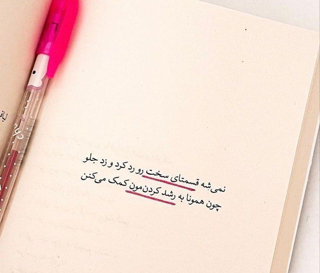 نمی‌شه قسمتای سخت رو رد کرد و زد جلو
چون همونا به رشد کردن‌مون کمک می‌کنن